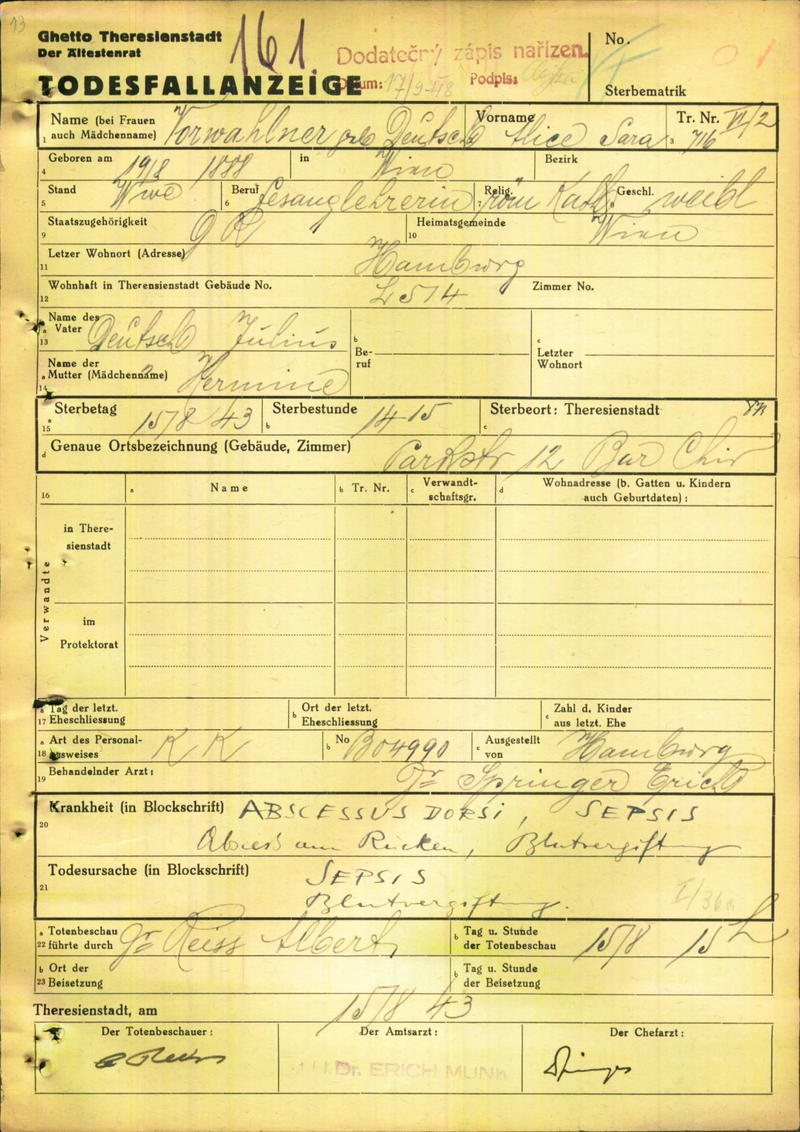 13
Ghetto Theresienstadt
Der Ältestenrat
161.
Dodatečný zápis nařízen.
Datum: 17/9-48 Podpis:
No.
TODESFALLANZEIGE
Sterbematrik
Name (bei Frauen auch Mädchenname) Vorwahlner geb Deutsch
Vorname Alice Sara
Tr. Nr. VI/2 716
1
3
4 Geboren am 19/8 1888 in Wien Bezirk
5 Stand Wwe
6 Beruf Gesanglehrerin
7 Relig. röm Kath
8 Geschl. weibl
9 Staatszugehörigkeit G R
10 Heimatsgemeinde Wien
11 Letzer Wohnort (Adresse) Hamburg
12 Wohnhaft in Theresienstadt Gebäude No. L 514 Zimmer No.
13 a Name des Vater Deutsch Julius
b Be-ruf
c Letzter Wohnort
14 a Name der Mutter (Mädchenname) Hermine
15 a Sterbetag 15/8 43
b Sterbestunde 14 15
c Sterbeort: Theresienstadt
d Genaue Ortsbezeichnung (Gebäude, Zimmer) Parkstr 12 Bar Chir
16 a Name
b Tr. Nr.
c Verwandt-schaftsgr.
d Wohnadresse (b. Gatten u. Kindern auch Geburtdaten):
Verwandte
in There-sienstadt
im Protektorat
17 a Tag der letzt. Eheschliessung
b Ort der letzt. Eheschliessung
c Zahl d. Kinder aus letzt. Ehe
18 a Art des Personal-ausweises K K
b No B04990
c Ausgestellt von Hamburg
19 Behandelnder Arzt: Dr Springer Erich
20 Krankheit (in Blockschrift) ABSCESSUS DORSI, SEPSIS
Abszess am Rücken, Blutvergiftung
21 Todesursache (in Blockschrift) SEPSIS
Blutvergiftung.
22 a Totenbeschau führte durch Dr Reiss Albert
b Tag u. Stunde der Totenbeschau 15/8 15 h
23 b Ort der Beisetzung
b Tag u. Stunde der Beisetzung
Theresienstadt, am 15/8 43
Der Totenbeschauer:
Der Amtsarzt:
Der Chefarzt:
Dr. ERICH MUNK